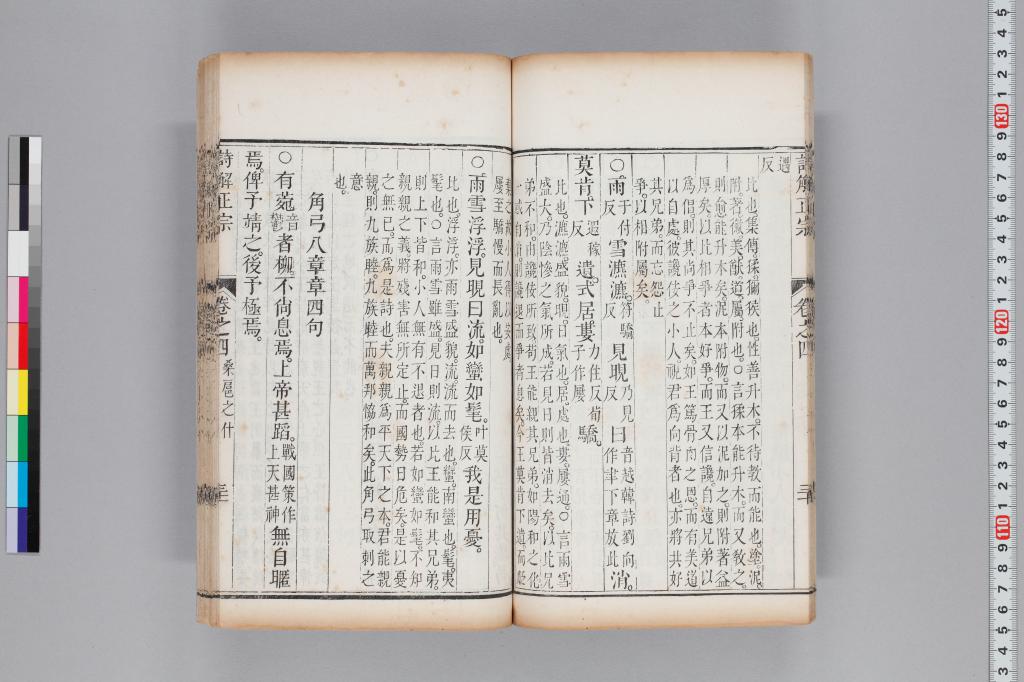 遐反
比也集傳猱獼猴也性善升木不待教而能也塗泥
附著徽美猷道屬附也○言猱本能升木而又教之
則愈能升木矣泥本附物而又以泥加之則附著益
厚矣以比相爭者本好爭而王又信讒自遠兄弟以
為倡則其尚爭不止矣如王篤骨肉之恩而有美道
以自處彼讒佞之小人祝君為向背者也亦將共好
其兄弟而忘怨止
爭以相附屬矣
○雨于付反雪瀌瀌符驕反見晛乃見反曰音越韓詩劉向作聿下章放此消
莫肯下遐稼反遺式居婁力住反荀子作屢驕
比也瀌瀌盛貌晛日氣也居處也婁屢通○言雨雪
盛大乃陰慘之氣所成若見日則皆消去矣以比兄
弟不和由讒佞所致苟王能親其兄弟如陽和之化
屢至驕慢而長亂也
○雨雪浮浮見晛曰流如蠻如髦叶莫侯反我是用憂
比也浮浮亦雨雪盛貌流流而去也蠻南蠻也髦夷
髦也○言雨雪雖盛見日則流以比王能和其兄弟
則上下皆和小人無有不退者也若如蠻如髦不知
親親之義將殘害無所定止而國勢日危矣是以憂
之無已而為是詩也夫親親為平天下之本君能親
親則九族睦九族睦而萬邦恊和矣此角弓取刺之
意也
角弓八章章四句
○有菀音鬱者柳不尚息焉上帝甚蹈戰國策作上天甚神無自暱
焉俾予靖之後予極焉
詩解正宗
卷之四
桑扈之什